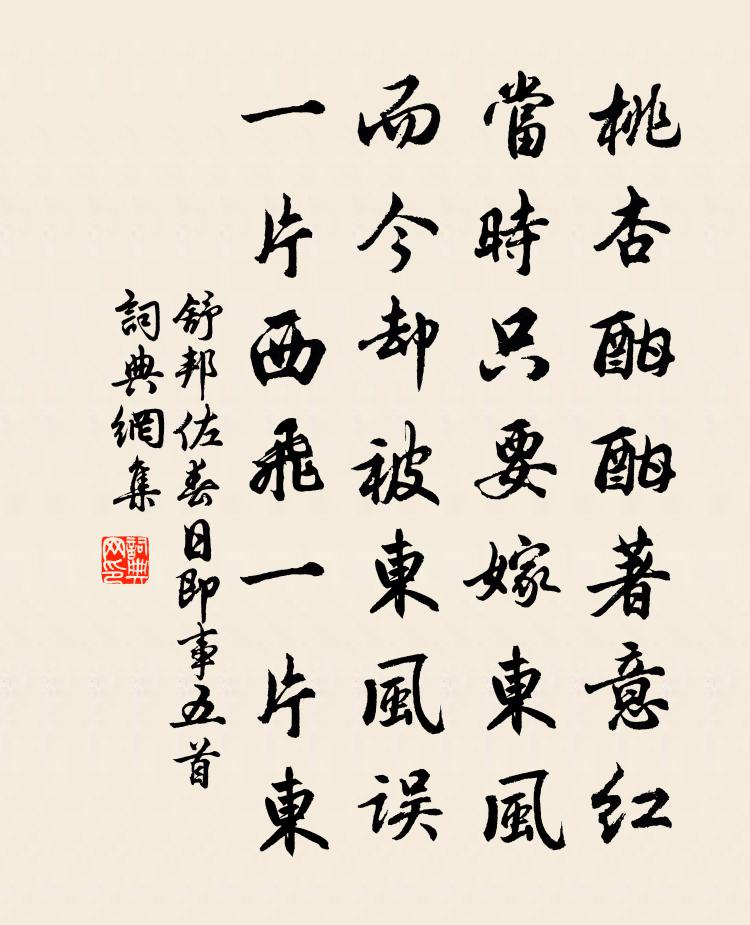 桃杏酣酣著意紅
當時只要嫁東風
而今却被東風误
一片西飛一片東
舒邦佐春日即事五首
詞典網集
詞典网印